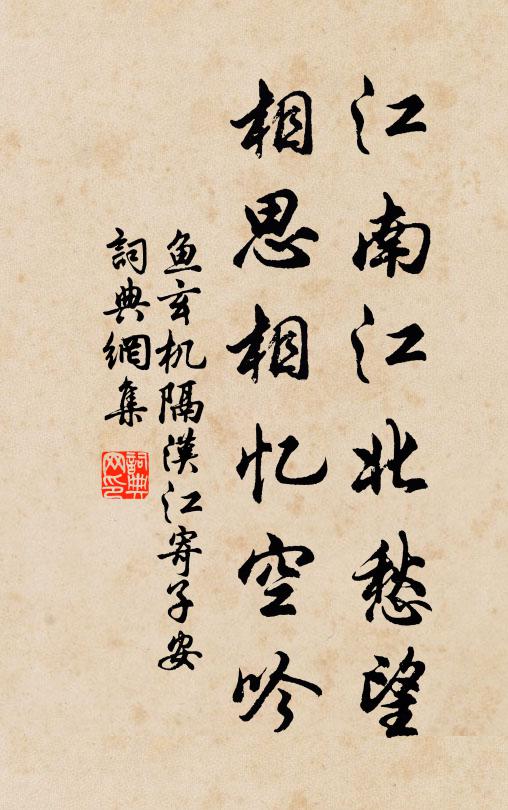 江南江北愁望
相思相忆空吟
鱼玄机隔漢江寄子安
詞典網集
詞典
网印